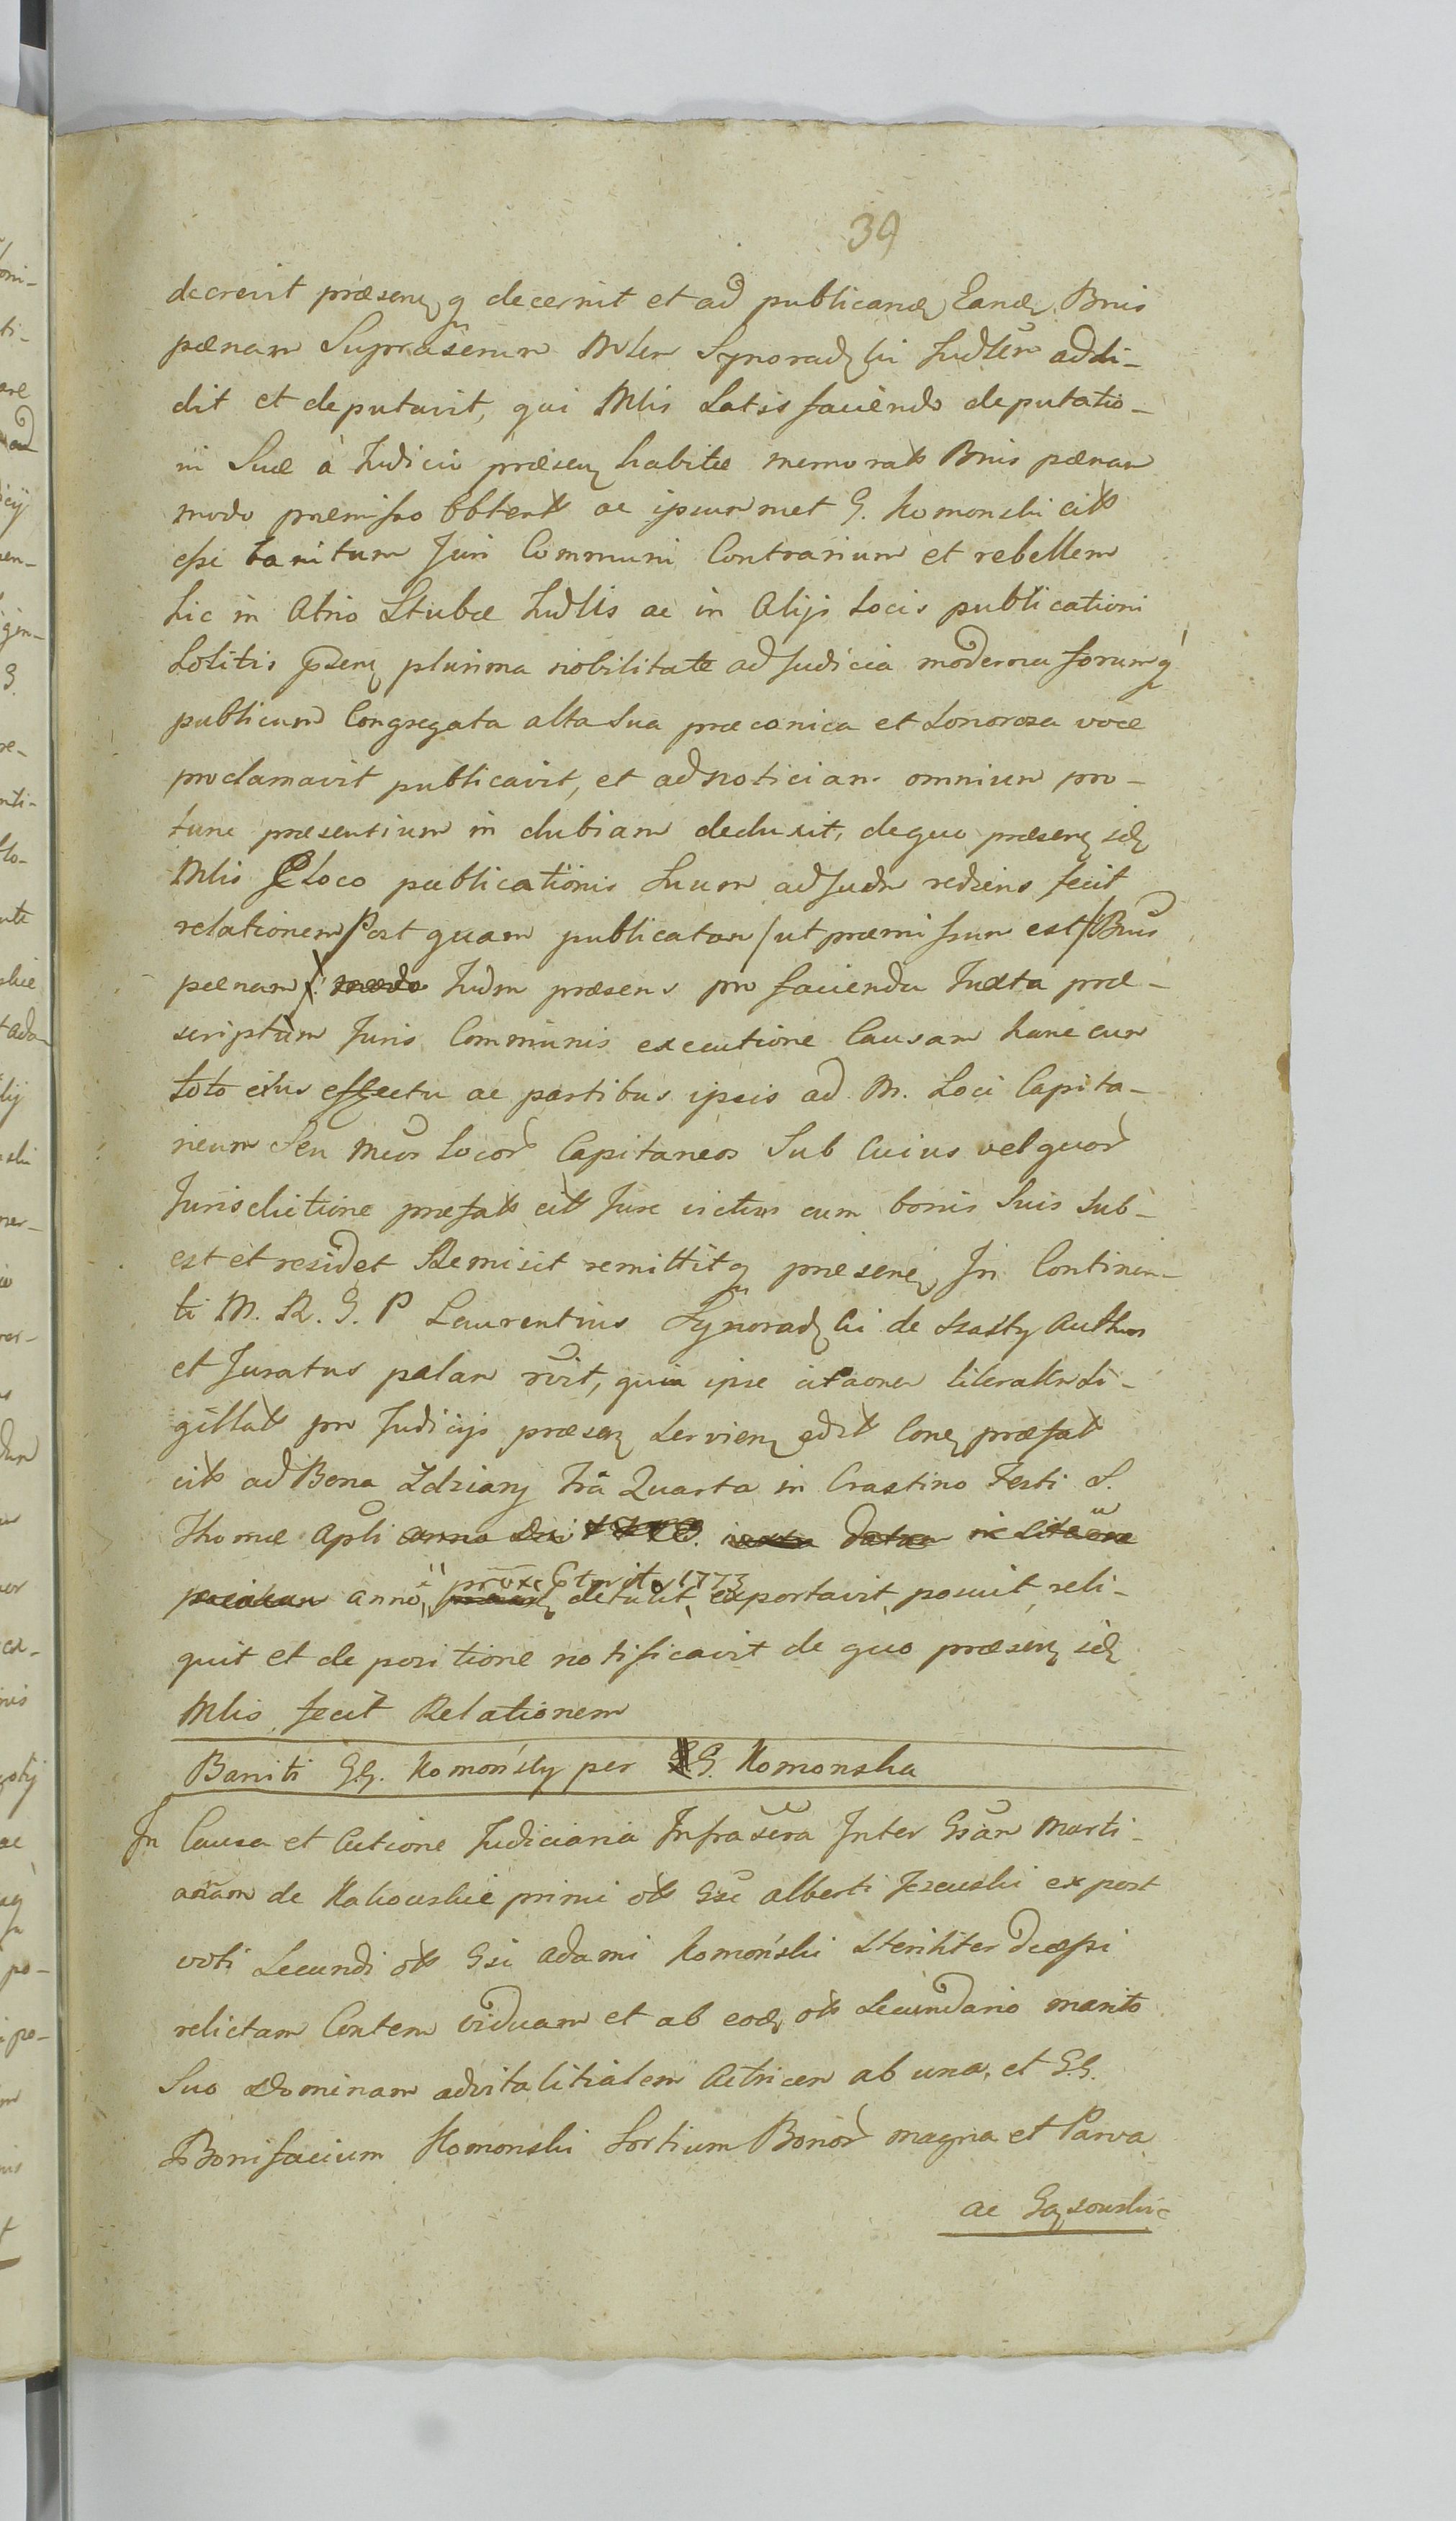 39
decrevit præsenꝫ q decernit et ad publicandꝫ Eandꝫ Bnis
pænam Suprascrem Mlem Synoradzki Judlem addi-
dit et deputavit, qui Mlis Satisfaciendo deputatio-
ni Suæ à Judicio præsenꝫ habitæ memorats Bnis pænam
modo præmisso obtents ac ipsummet G. Komonski cits
esse banitum Juri Communi Contrarium et rebellem
hic in Atrio Stubæ Judlis ac in Alijs Locis publicationi
Solitis pꝛsenꝫ plurima nobilitate ad Judicia moderna forumq
publicum Congregata alta Sua præconica et Sonorosa voce
proclamavit publicavit, et ad noticiam omnium pro-
tunc præsentium in dubiam deduxit, de quo præsenꝫ idꝫ
Mlis e loco publicationis Suum ad Judm rediens fecit
relationem Post quam publicatam /ut præmissum est/ Bnis
pænam Judm præsens pro facienda Juxta præ-
scriptum Juris Communis executione Causam hanc cum
toto eius effectu ac partibus ipsis ad M. Loci Capita-
neum Seu Mcos Locor Capitaneos Sub Cuius vel quor
Jurisdictione præfats cits Jure victus cum bonis Suis Sub-
est et residet Remisit remittitq præsenꝫ In Continen-
ti M. R. G. P Laurentius Synoradzki de Szasty Authus
et Juratus palam rvit, quia ipse citaonem literalem Si-
gillats pro Judicijs præsenꝫ Servienꝫ edits Conꝫ præfats
cits ad Bona Zdziary fria Quarta in Crastino Festi S.
Thomæ Apli anno Dni
anno proxe Etrito 1773 detulit, exportavit, posuit, reli-
quit et de positione notificavit de quo præsenꝫ idꝫ
Mlis fecit Relationem
Baniti G.G. Komońscy per G. Komonska
In Causa et Actione Judiciaria Infrascra Inter Gsam Marti-
anam de Kakowskie primi ols Gsi Alberti Jezewski ex post
voti Secundi ols Gsi Adami Komoński Steriliter Decessi
relictam Contem viduam et ab eodꝫ ols Secundario marito
Suo Dominam advitalitialem Actricem ab una, et G.G.
Bonifacium Komonski Sortium Bonor magna et Parva
ac